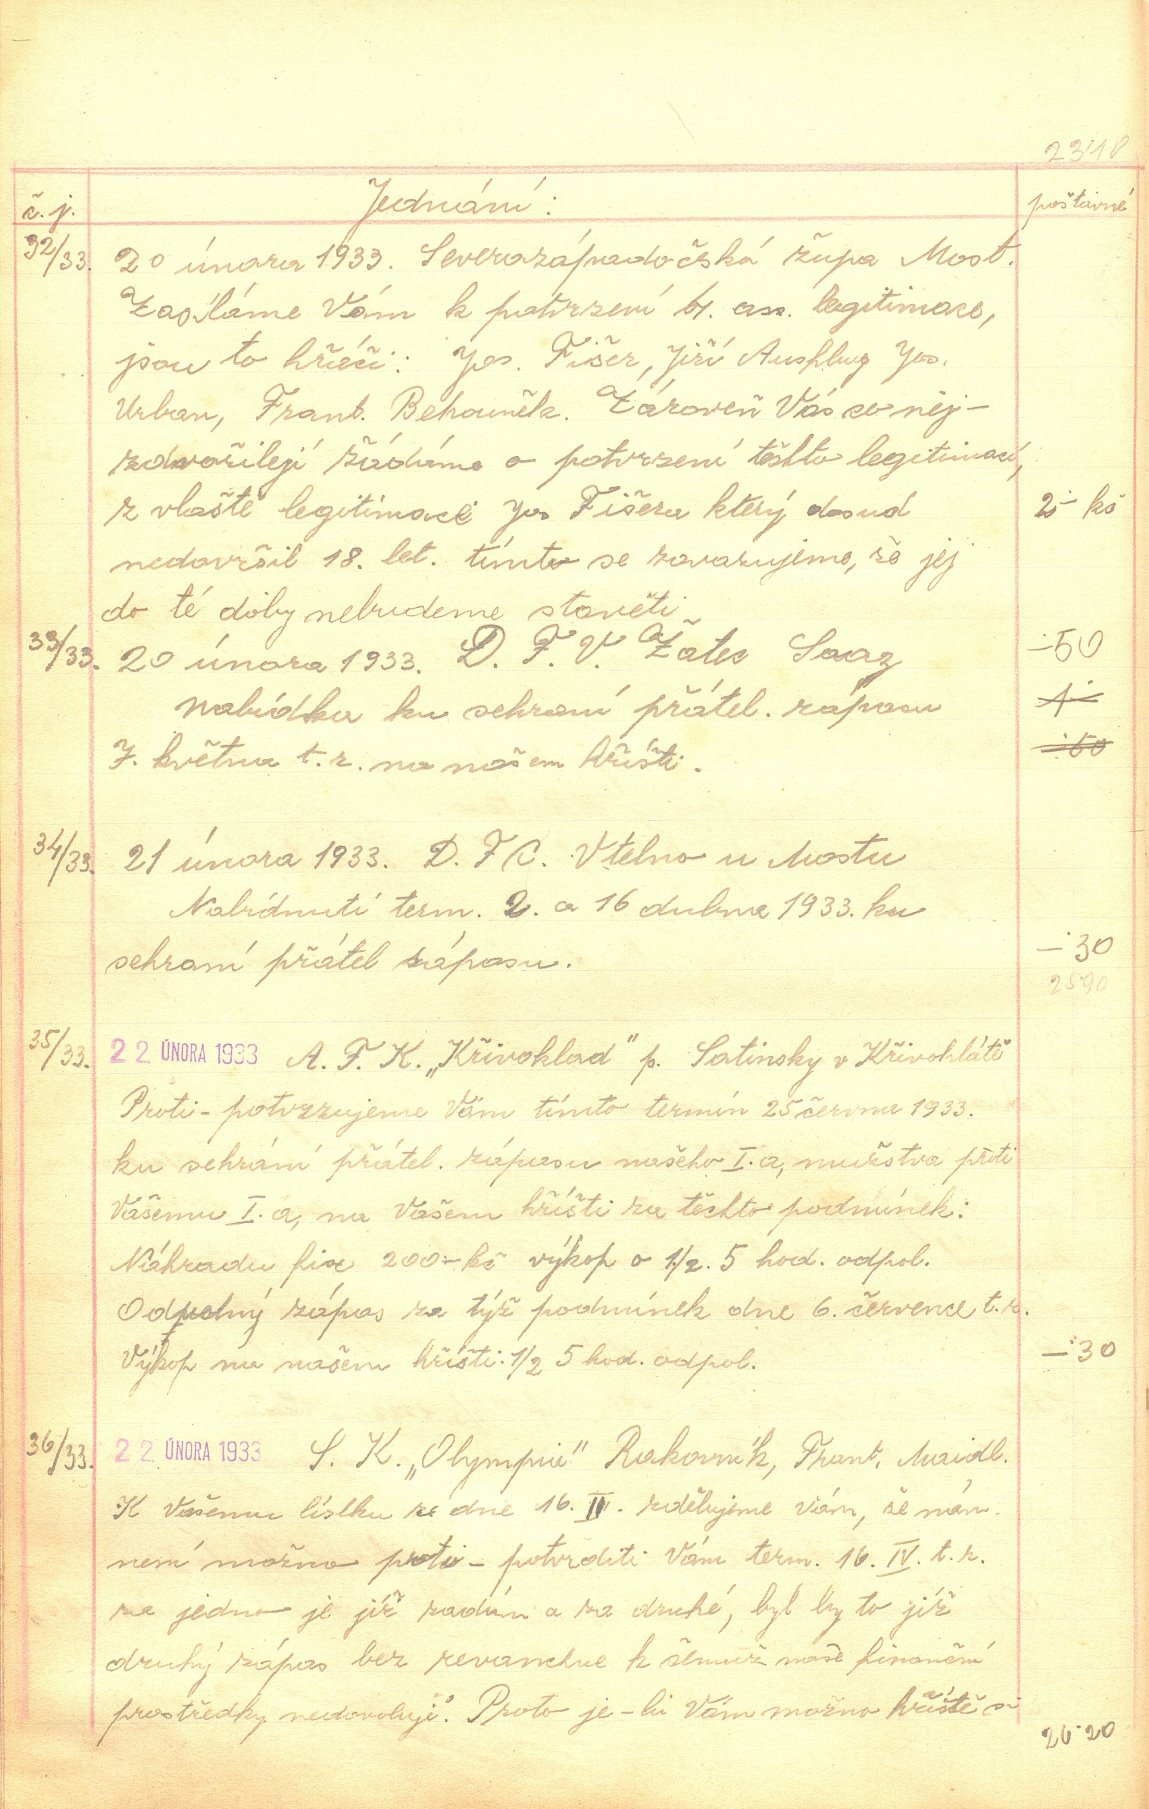 23'18
č. j.
Jednání:
poštovné
32/33.
20 února 1933. Severozápadočeská župa Most.
Zasíláme Vám k potvrzení 4. ass. legitimace,
jsou to hráči: Jos. Fišer, Jiří Jos.
Urban, Frant. Behouněk. Zároveň Vás co nej-
zdvořileji žádáme o potvrzení těchto legitimací,
z vlaště legitimace Jos Fišera který dosud
2·- kč
nedovršil 18. let. tímto se zavazujeme, že jej
do té doby nebudeme stavěti
33/33.
20 února 1933. D. F. V. Žatec Saaz
-·50
nabídka ku sehraní přátel. zápasu
1·-
7. května t. r. na našem hřišti.
·50
34/33.
21 února 1933. D. F C. Vtelno u Mostu
Nabídnutí term. 2. a 16 dubna 1933. ku
sehraní přátel zápasu.
-·30
25·90
35/33.
22 ÚNORA 1933 A. F. K. „Křivoklad" p. Satinsky v Křivoklátě
Proti-potvrzujeme Vám tímto termín 25 června 1933.
ku sehrání přátel. zápasu našeho I. a, mužstva proti
Vašemu I. a, na Vašem hřišti za těchto podmínek:
Náhradu fix 200·- kč výkop o 1/2. 5 hod. odpol.
Odvetný zápas za týž podmínek dne 6. července t. r.
Výkop na našem hřišti: 1/2 5 hod. odpol.
-·30
36/33.
22 ÚNORA 1933 S. K. „Olympie" Rakovník, Frant. Maidl.
K Vašemu lístku ze dne 16. II. zdělujeme Vám, že nám
není možno proti-potvrditi Vám term. 16. IV. t. r.
za jedno je již zadán a za druhé, byl by to již
druhý zápas bez revanche k čemuž naše finanční
prostředky nedovolují. Proto je-li Vám možno hřiště
26·20